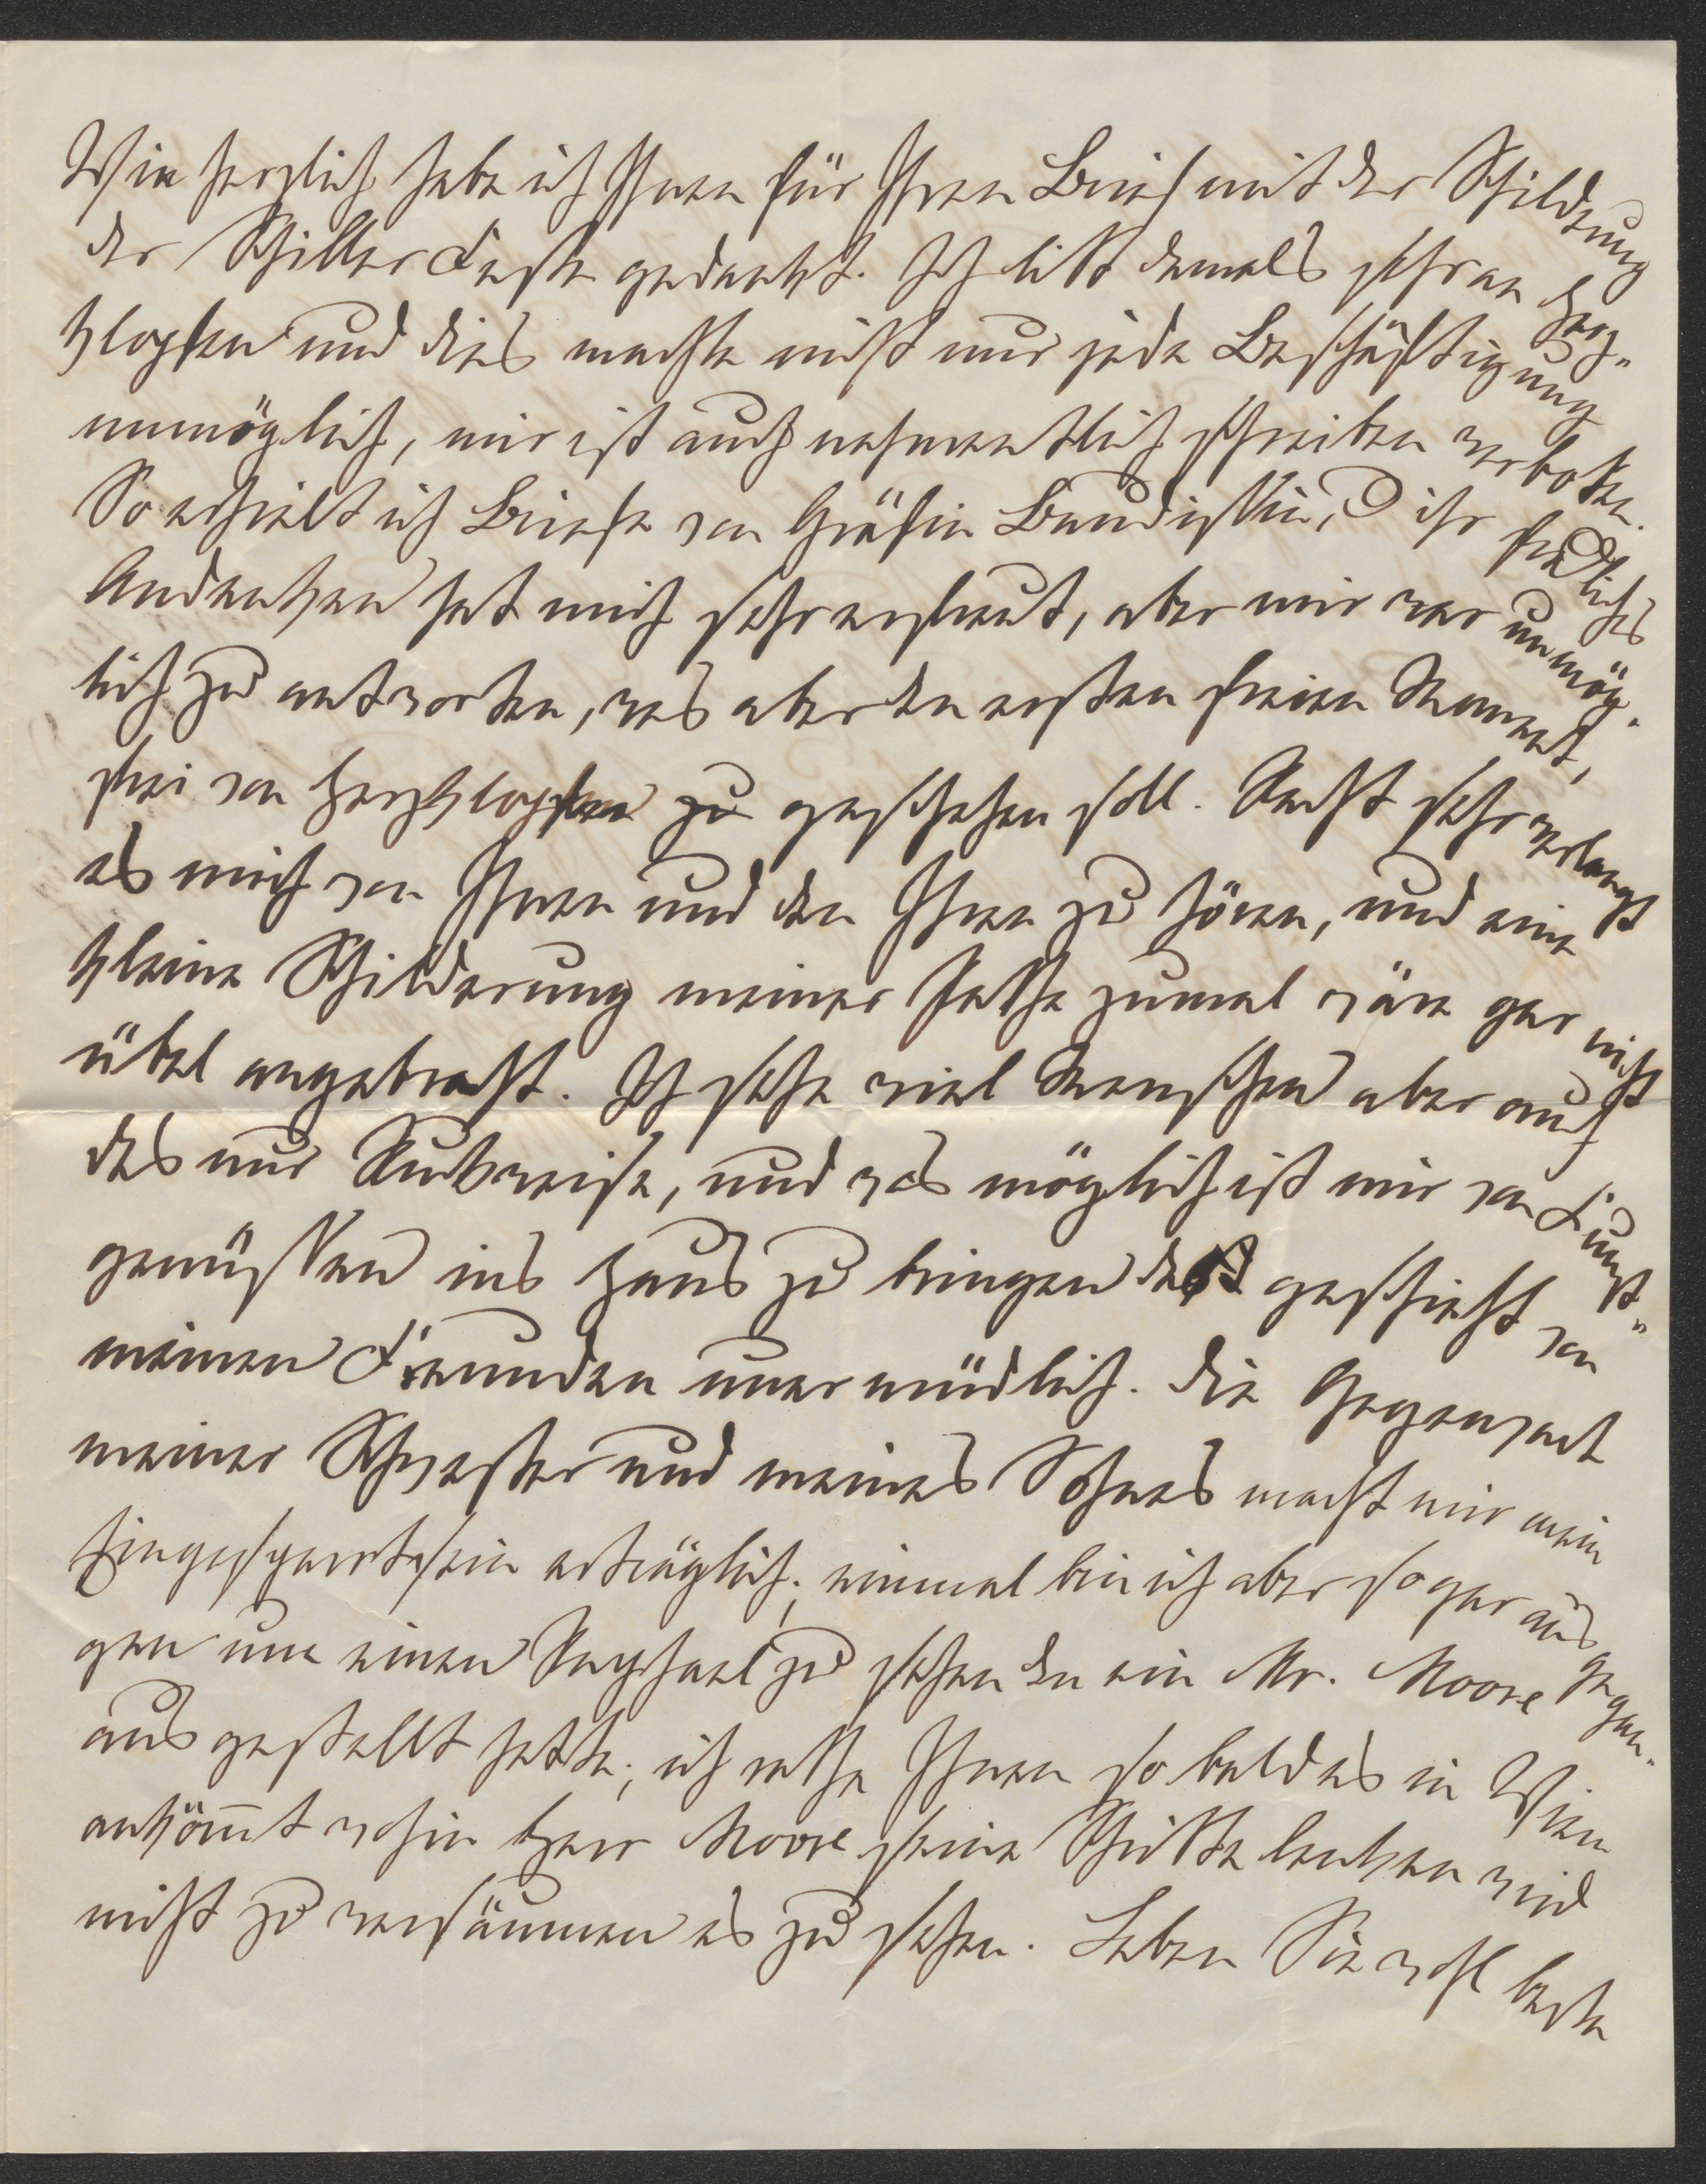 Wie herzlich habe ich Ihnen für Ihren Brief mit der Schildrung
der Schiller Feste gedankt. Ich litt damals sehr an Herz-
klopfen und dies machte nicht nur jede Beschäftigung
unmöglich, mir ist auch nahmentlich schreiben verboten.
So erhielt ich Briefe von Gräfin Baudissin, ihr freundliches
Andenken hat mich sehr erfreut, aber mir war unmög-
lich zu antworten, was aber den ersten freien Moment,
frei von Herzklopfen zu geschehen soll. Recht sehr verlangt
es mich von Ihnen und den Ihren zu hören, und eine
kleine Schilderung meiner Pathe zumal wäre gar nicht
übel angebracht. Ich sehe viel Menschen aber auch
das nur Ruckweise, und was möglich ist mir von Kunst-
genüssen ins Haus zu bringen das geschieht von
meinen Freunden unermüdlich. Die Gegenwart
meiner Schwester und meines Sohnes macht mir mein
Eingesperrtsein erträglich; einmal bin ich aber sogar ausgegan-
gen um einen Raphael zu sehen den ein Mr. Moore
ausgestellt hatte; ich rathe Ihnen so bald es in Wien
ankömt wohin Herr Moore seine Schritte lenken wird
nicht zu versäumen es zu sehen. Leben Sie wohl beste